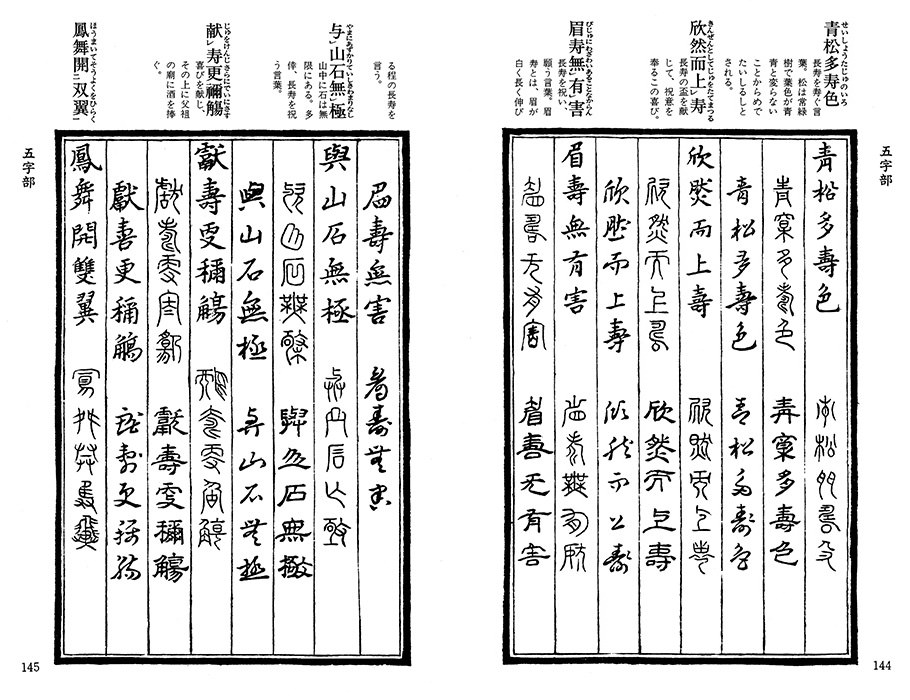 せいしょうたじゅのいろ
青松多寿色
長寿を寿ぐ言
葉。松は常緑
樹で葉色が青
青と変らない
ことからめで
たいしるしと
される。
きんぜんとしてじゅをたてまつる
欣然而上レ寿
長寿の盃を献
じて、祝意を
奉るこの喜び。
びじゅにわざわいあることなからん
眉寿無レ有レ害
長寿を祝い、
願う言葉。眉
寿とは、眉が
白く長く伸び
五字部
青松多壽色 青松多壽色
青松多壽色 青松多壽色
青松多壽色 青松多壽色
欣然而上壽 欣然而上壽
欣然而上壽 欣然而上壽
欣然而上壽 欣然而上壽
眉壽無有害 眉壽無有害
眉壽无有害 眉壽无有害
144
る程の長寿を
言う。
与レ山石無レ極
山中に石は無
限にある。多
倖、長寿を祝
う言葉。
献レ寿更禰觴
喜びを献じ、
その上に父祖
の廟に酒を捧
ぐ。
ほうまいてそうよくをひらく
鳳舞開二双翼一
眉壽無害 眉壽無害
與山石無極 與山石
與山石無極 與山石無極
與山石無極 与山石無極
獻壽更禰觴 壽更觴
獻壽更 獻壽更禰觴
獻壽更禰觴 獻壽更禰觴
鳳舞開雙翼 舞開雙翼
五字部
145